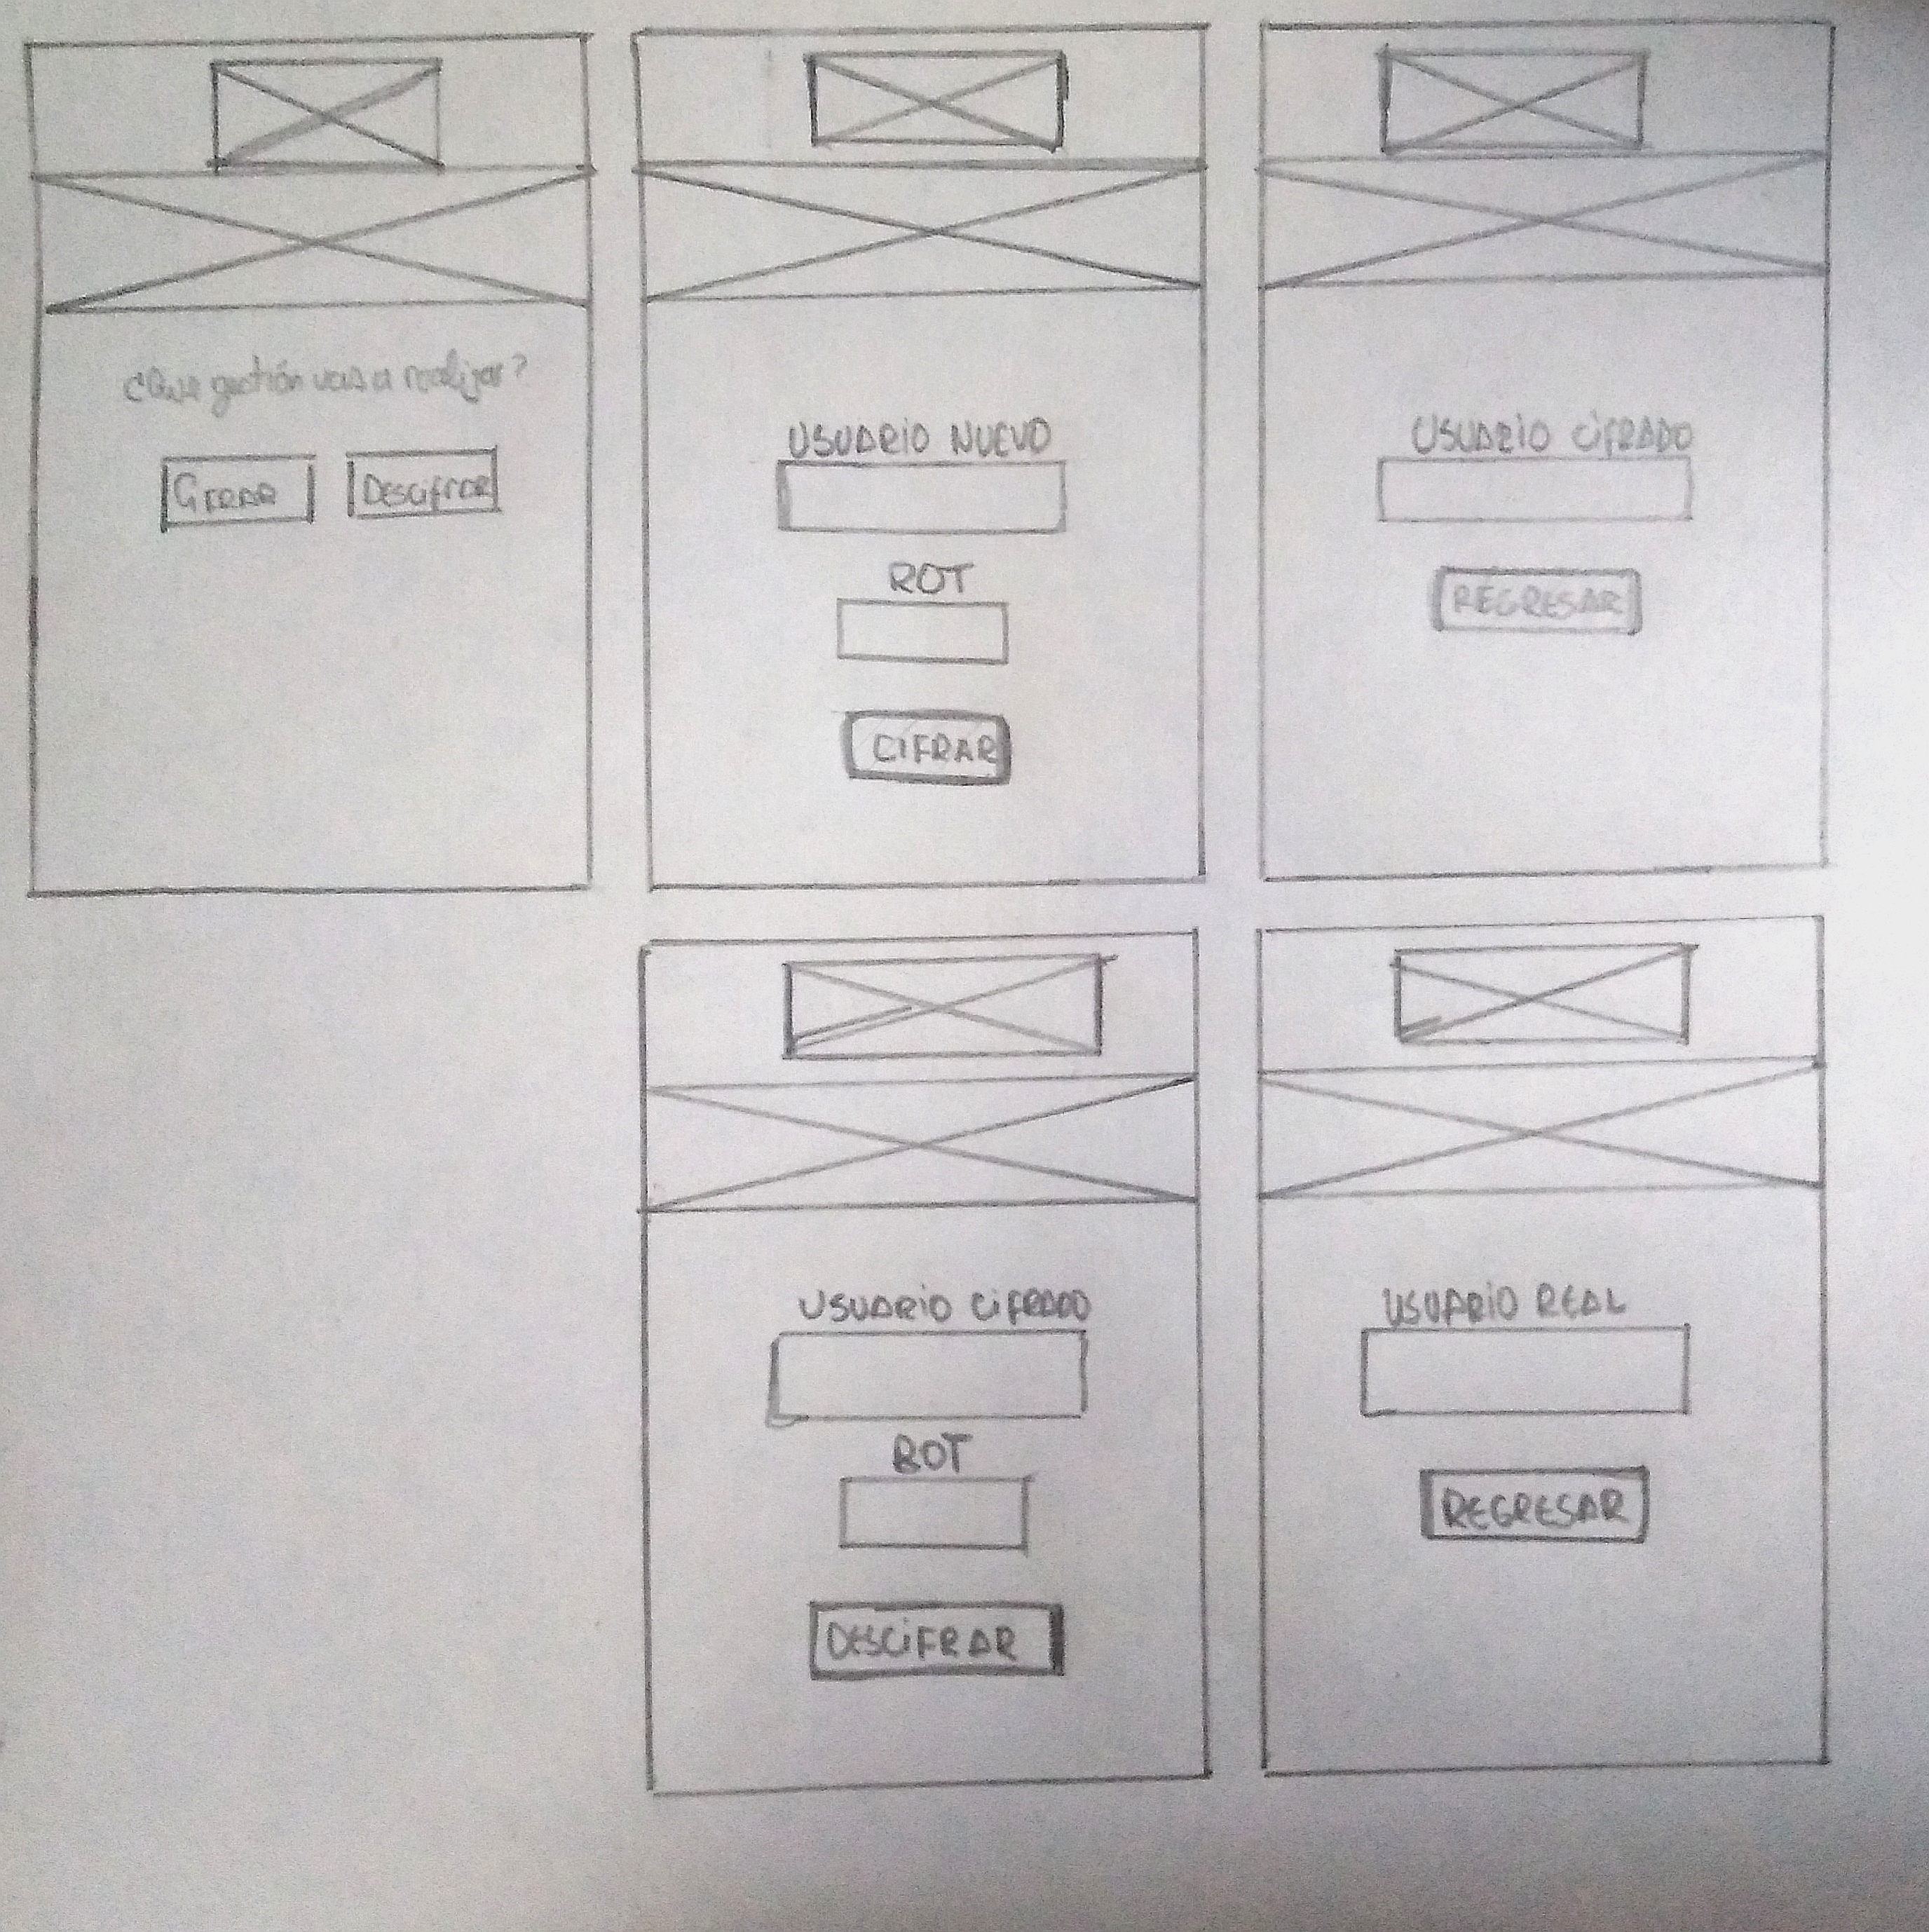 ¿Que gestión vas a realizar?
Cifrar Descifrar
USUARIO NUEVO
ROT
CIFRAR
USUARIO CIFRADO
REGRESAR
USUARIO CIFRADO
ROT
DESCIFRAR
USUARIO REAL
REGRESAR